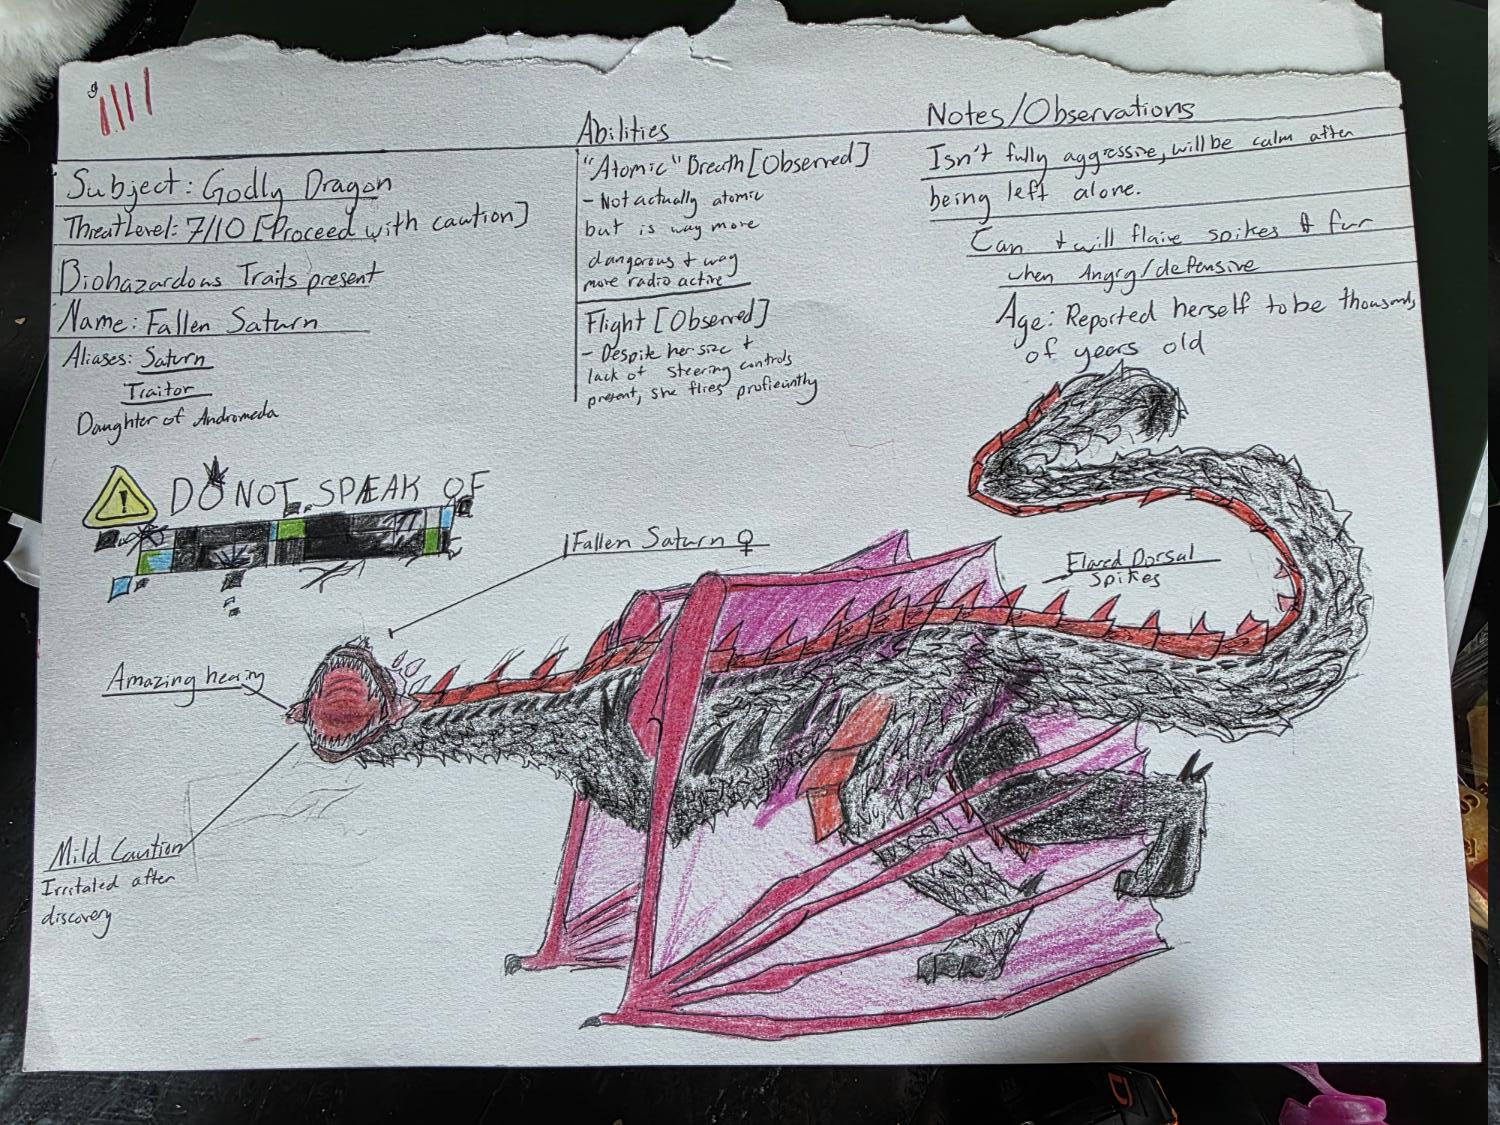 Subject: Godly Dragon
Threat Level: 7/10 [Proceed with caution]
Biohazardous Traits present
Name: Fallen Saturn
Aliases: Saturn
Traitor
Daughter of Andromeda
! DO NOT SPEAK OF
Abilities
"Atomic" Breath [Observed]
- Not actually atomic
but is way more
dangerous + way
more radio active
Flight [Observed]
- Despite her size +
lack of steering controls
present, she flies proficiently
Notes/Observations
Isn't fully aggressive, will be calm after
being left alone.
Can + will flaire spikes & fur
when Angry/defensive
Age: Reported herself to be thousands
of years old
Fallen Saturn ♀
Flared Dorsal
Spikes
Amazing hearing
Mild Caution
Irritated after
discovery